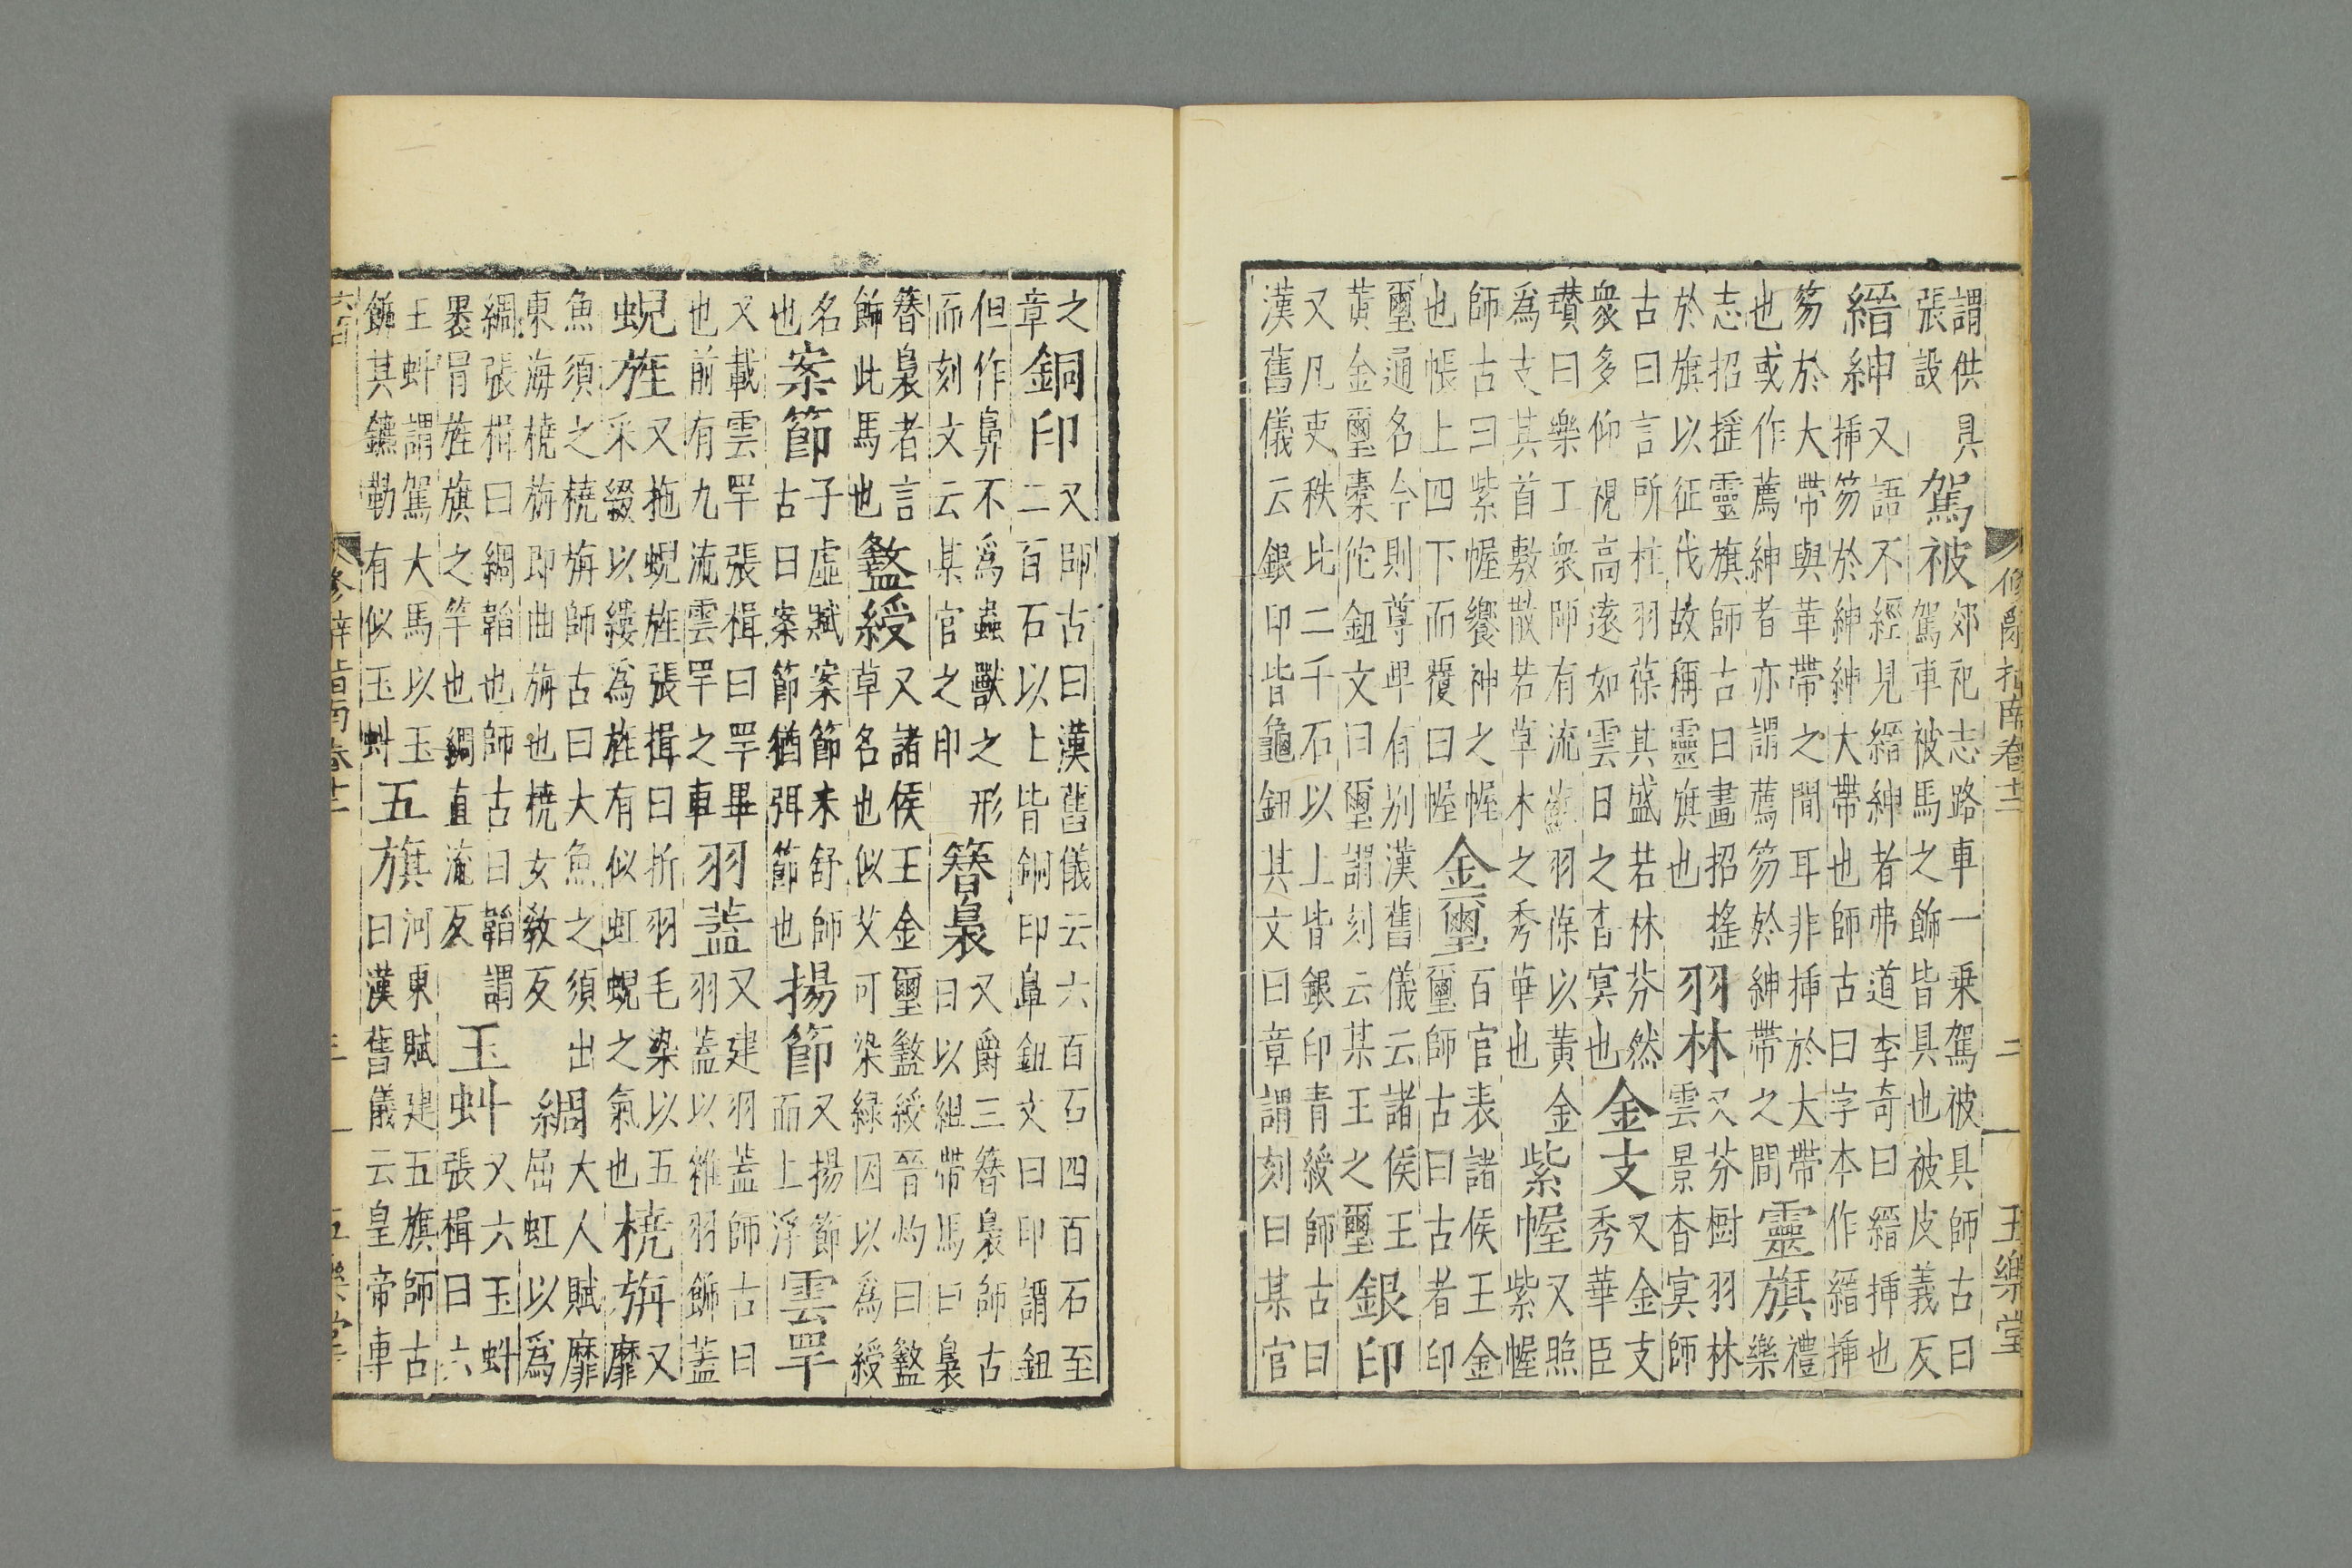 修辭指南卷十二　二　五樂堂
謂供具
張設
駕被
郊祀志路車一乗駕被具師古曰
駕車被馬之飾皆具也被皮義反
縉紳
又語不經見縉紳者弗道李奇曰縉挿也
挿笏於紳紳大帶也師古曰字本作縉挿
笏於大帶與革帶之間耳非挿於大帶
也或作薦紳者亦謂薦笏於紳帶之間
靈旗
禮
樂
志招揺靈旗師古曰畫招揺
於旗以征伐故稱靈旗也
羽林
又芬樹羽林
雲景杳冥師
古曰言所柱羽葆其盛若林芬然
衆多仰視高遠如雲日之杳冥也
金支
又金支
秀華臣
瓉曰樂工衆師有流蘇羽葆以黄金
為支其首敷散若草木之秀華也
紫幄
又照
紫幄
師古曰紫幄饗神之幄
也帳上四下而覆曰幄
金璽
百官表諸侯王金
璽師古曰古者印
璽通名今則尊卑有别漢舊儀云諸侯王
黄金璽槖佗鈕文曰璽謂刻云某王之璽
銀印
又凡吏秩比二千石以上皆銀印青綬師古曰
漢舊儀云銀印皆龜鈕其文曰章謂刻曰某官
之
章
銅印
又師古曰漢舊儀云六百石四百石至
二百石以上皆銅印鼻鈕文曰印謂鈕
但作鼻不為蟲獸之形
而刻文云某官之印
簪裊
又爵三簪裊師古
曰以組帶馬曰裊
簪裊者言
飾此馬也
盭綬
又諸侯王金璽盭綬晉灼曰盭
草名也似艾可染緑因以為綬
名
也
案節
子虚賦案節未舒師
古曰案節猶弭節也
揚節
又揚節
而上浮
雲罕
又載雲罕張揖曰罕畢
也前有九流雲罕之車
羽蓋
又建羽蓋師古曰
羽蓋以雜羽飾蓋
蜺旌
又拖蜺旌張揖曰折羽毛染以五
采綴以縷為旌有似虹蜺之氣也
橈旃
又
靡
魚須之橈旃師古曰大魚之須出
東海橈旃即曲旃也橈女敎反
綢
大人賦靡
屈虹以為
綢張揖曰綢韜也師古曰韜謂
裹冐旌旗之竿也綢直流反
玉虬
又六玉虬
張揖曰六
玉虬謂駕大馬以玉
飾其鑣勒有似玉虬
五旗
河東賦建五旗師古
曰漢舊儀云皇帝車